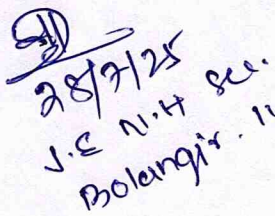 28/7/25
J.E N.H Sec.
Bolangir.